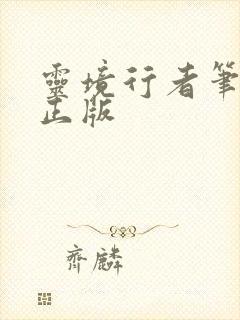 靈境行者筆
正版
齊麟